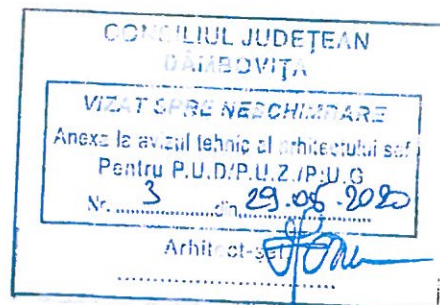 CONSILIUL JUDEȚEAN
DÂMBOVIȚA
VIZAT SPRE NESCHIMBARE
Anexa la avizul tehnic al arhitectului sef
Pentru P.U.D/P.U.Z./P.U.G
Nr. 3 din 29.05.2020
Arhitect-sef